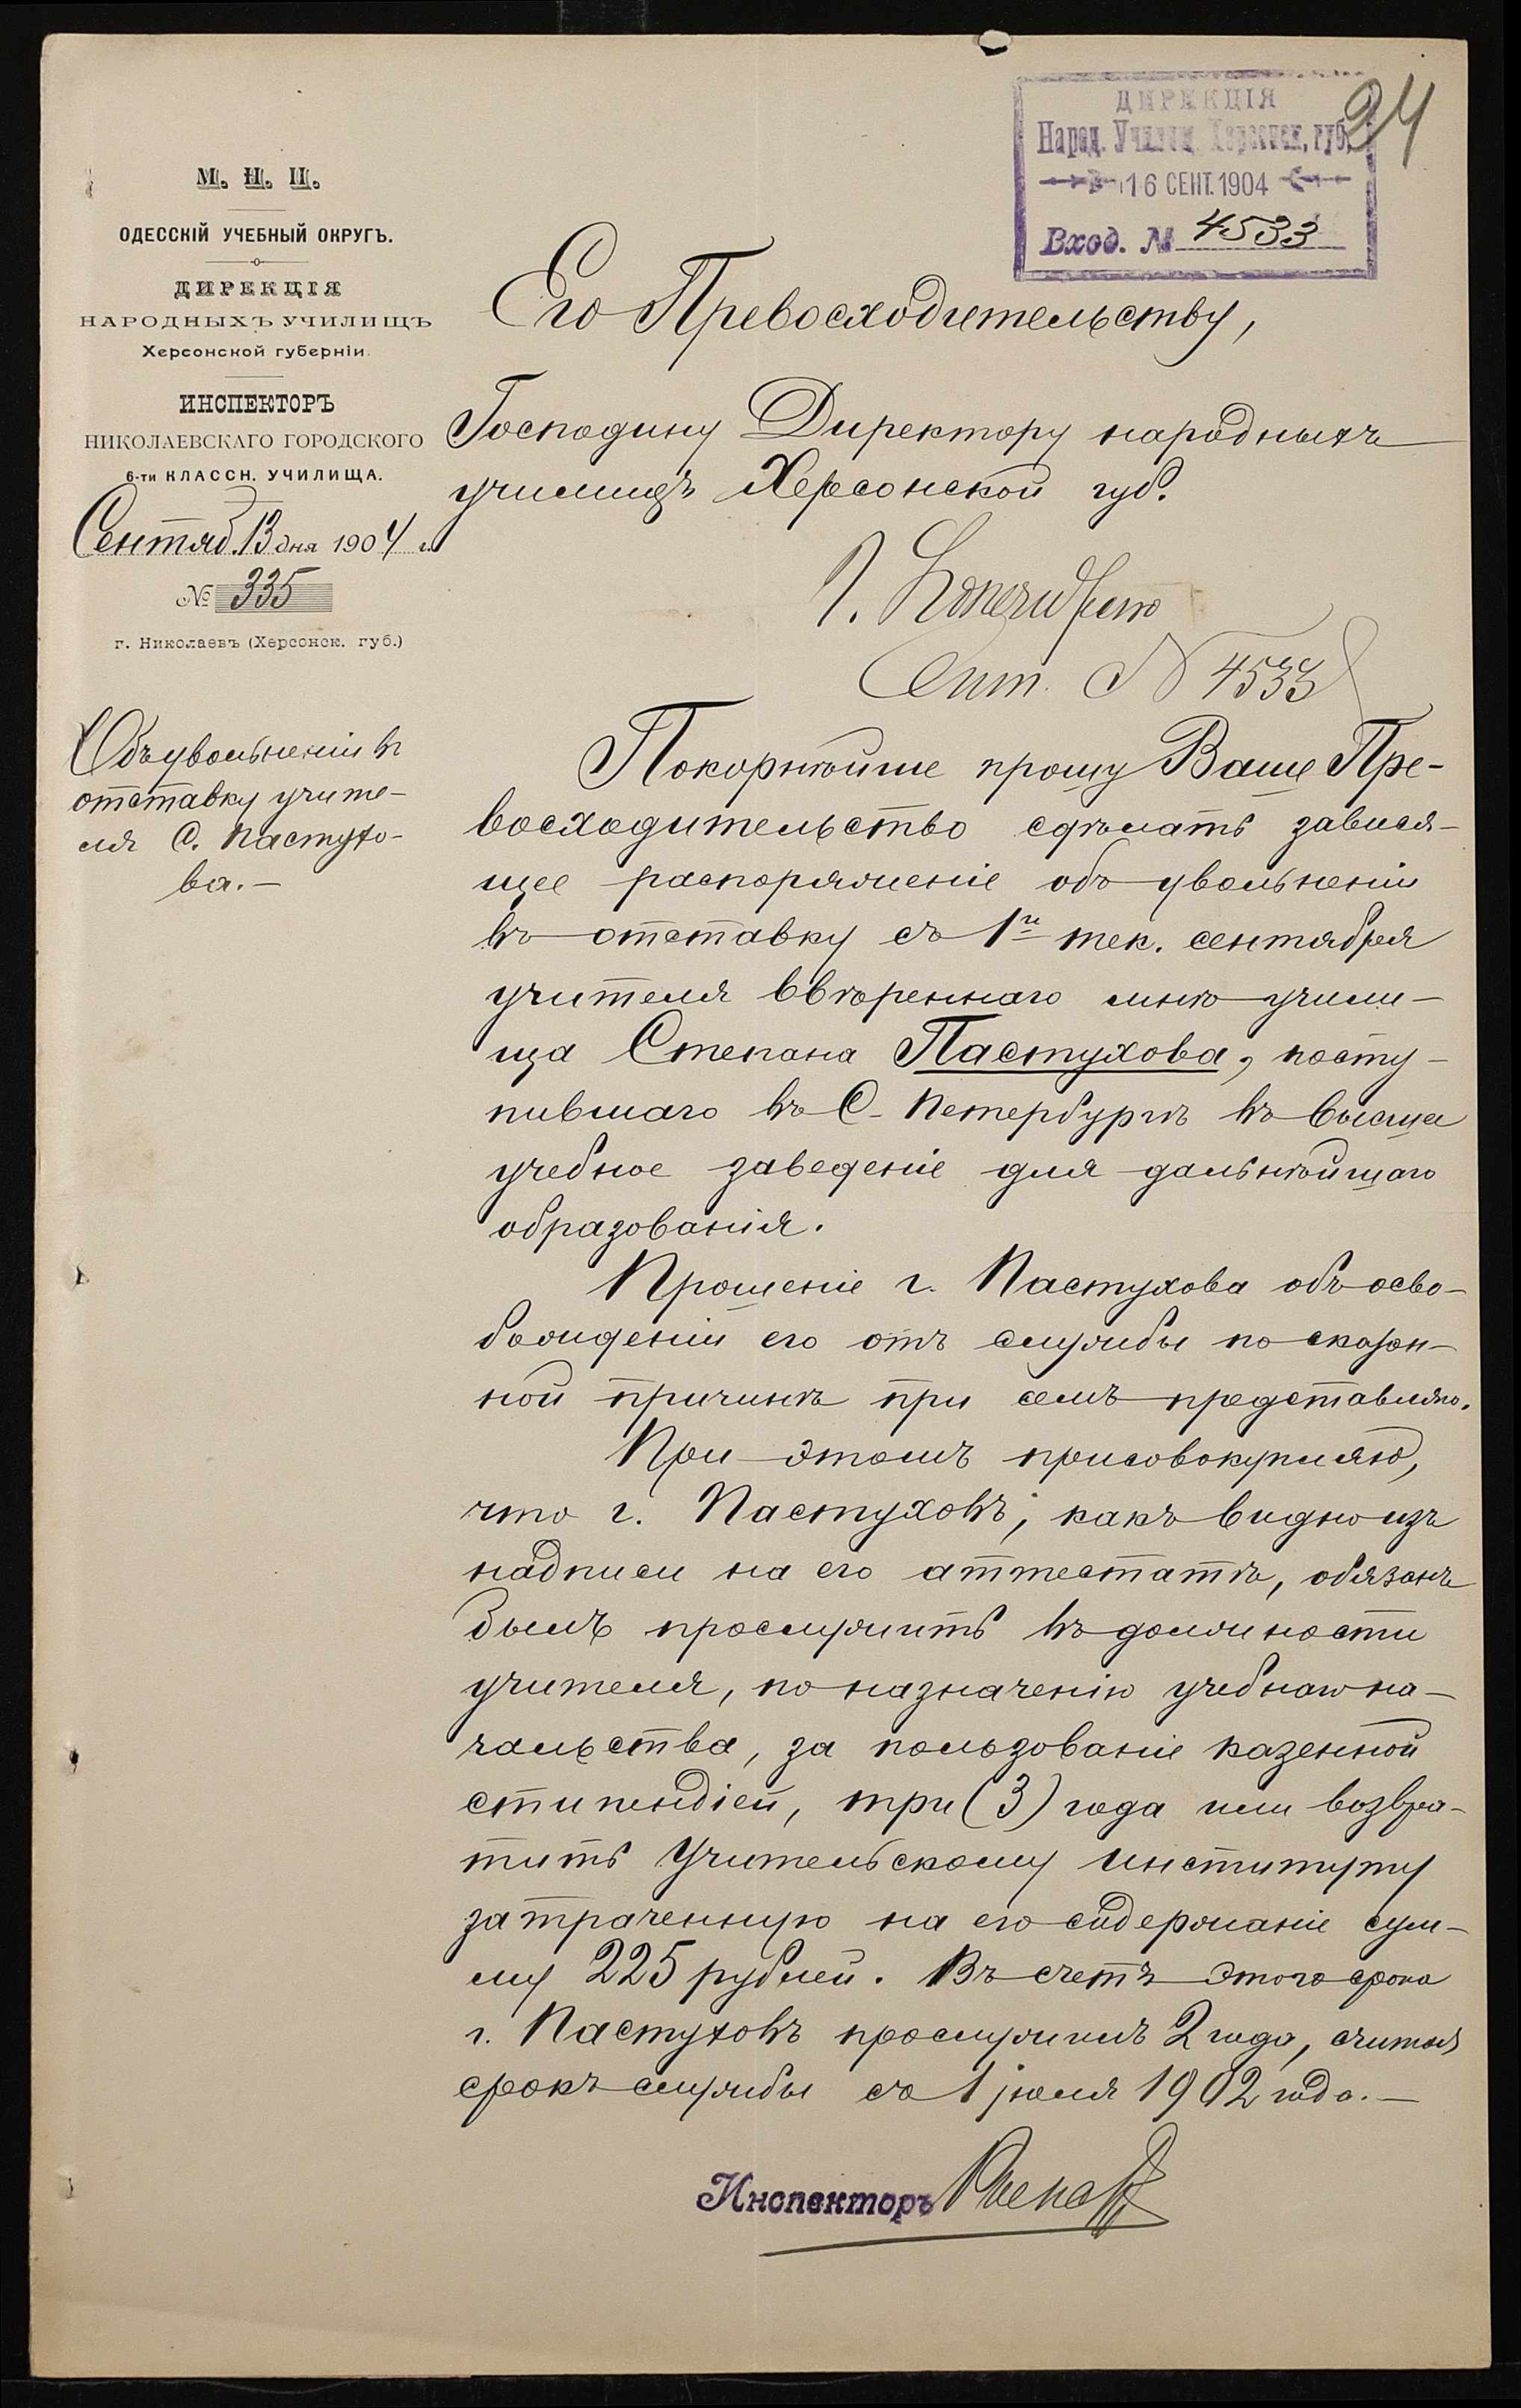 ДИРЕКЦІЯ
Народ. Училищ. Херсонск. губ.
16 СЕНТ. 1904
Вход. № 4533
24
М. Н. П.
ОДЕССКІЙ УЧЕБНЫЙ ОКРУГЪ.
ДИРЕКЦІЯ
НАРОДНЫХЪ УЧИЛИЩЪ
Херсонской губерніи.
ИНСПЕКТОРЪ
НИКОЛАЕВСКАГО ГОРОДСКОГО
6-ти КЛАССН. УЧИЛИЩА.
Сентяб. 13 дня 1904 г.
№ 335
г. Николаевъ (Херсонск. губ.)
Объ увольненіи въ
отставку учите-
ля С. Пастухо-
ва.—
Его Превосходительству,
Господину Директору народныхъ
училищъ Херсонской губ.
№ 4533
Покорнѣйше прошу Ваше Пре-
восходительство сдѣлать завися-
щее распоряженіе объ увольненіи
въ отставку съ 1го тек. сентября
учителя ввѣреннаго мнѣ учили-
ща Степана Пастухова, посту-
пившаго въ С-Петербургѣ въ высшее
учебное заведеніе для дальнѣйшаго
образованія.
Прошеніе г. Пастухова объ осво-
божденіи его отъ службы по сказан-
ной причинѣ при семъ представляю.
При этомъ присовокупляю,
что г. Пастуховъ, какъ видно изъ
надписи на его аттестатѣ, обязанъ
былъ прослужить въ должности
учителя, по назначенію учебнаго на-
чальства, за пользованіе казенной
стипендіей, три (3) года или возвра-
тить Учительскому Институту
затраченную на его содержаніе сум-
му 225 рублей. Въ счетъ этого срока
г. Пастуховъ прослужилъ 2 года, считая
срокъ службы съ 1 іюля 1902 года.—
Инспекторъ